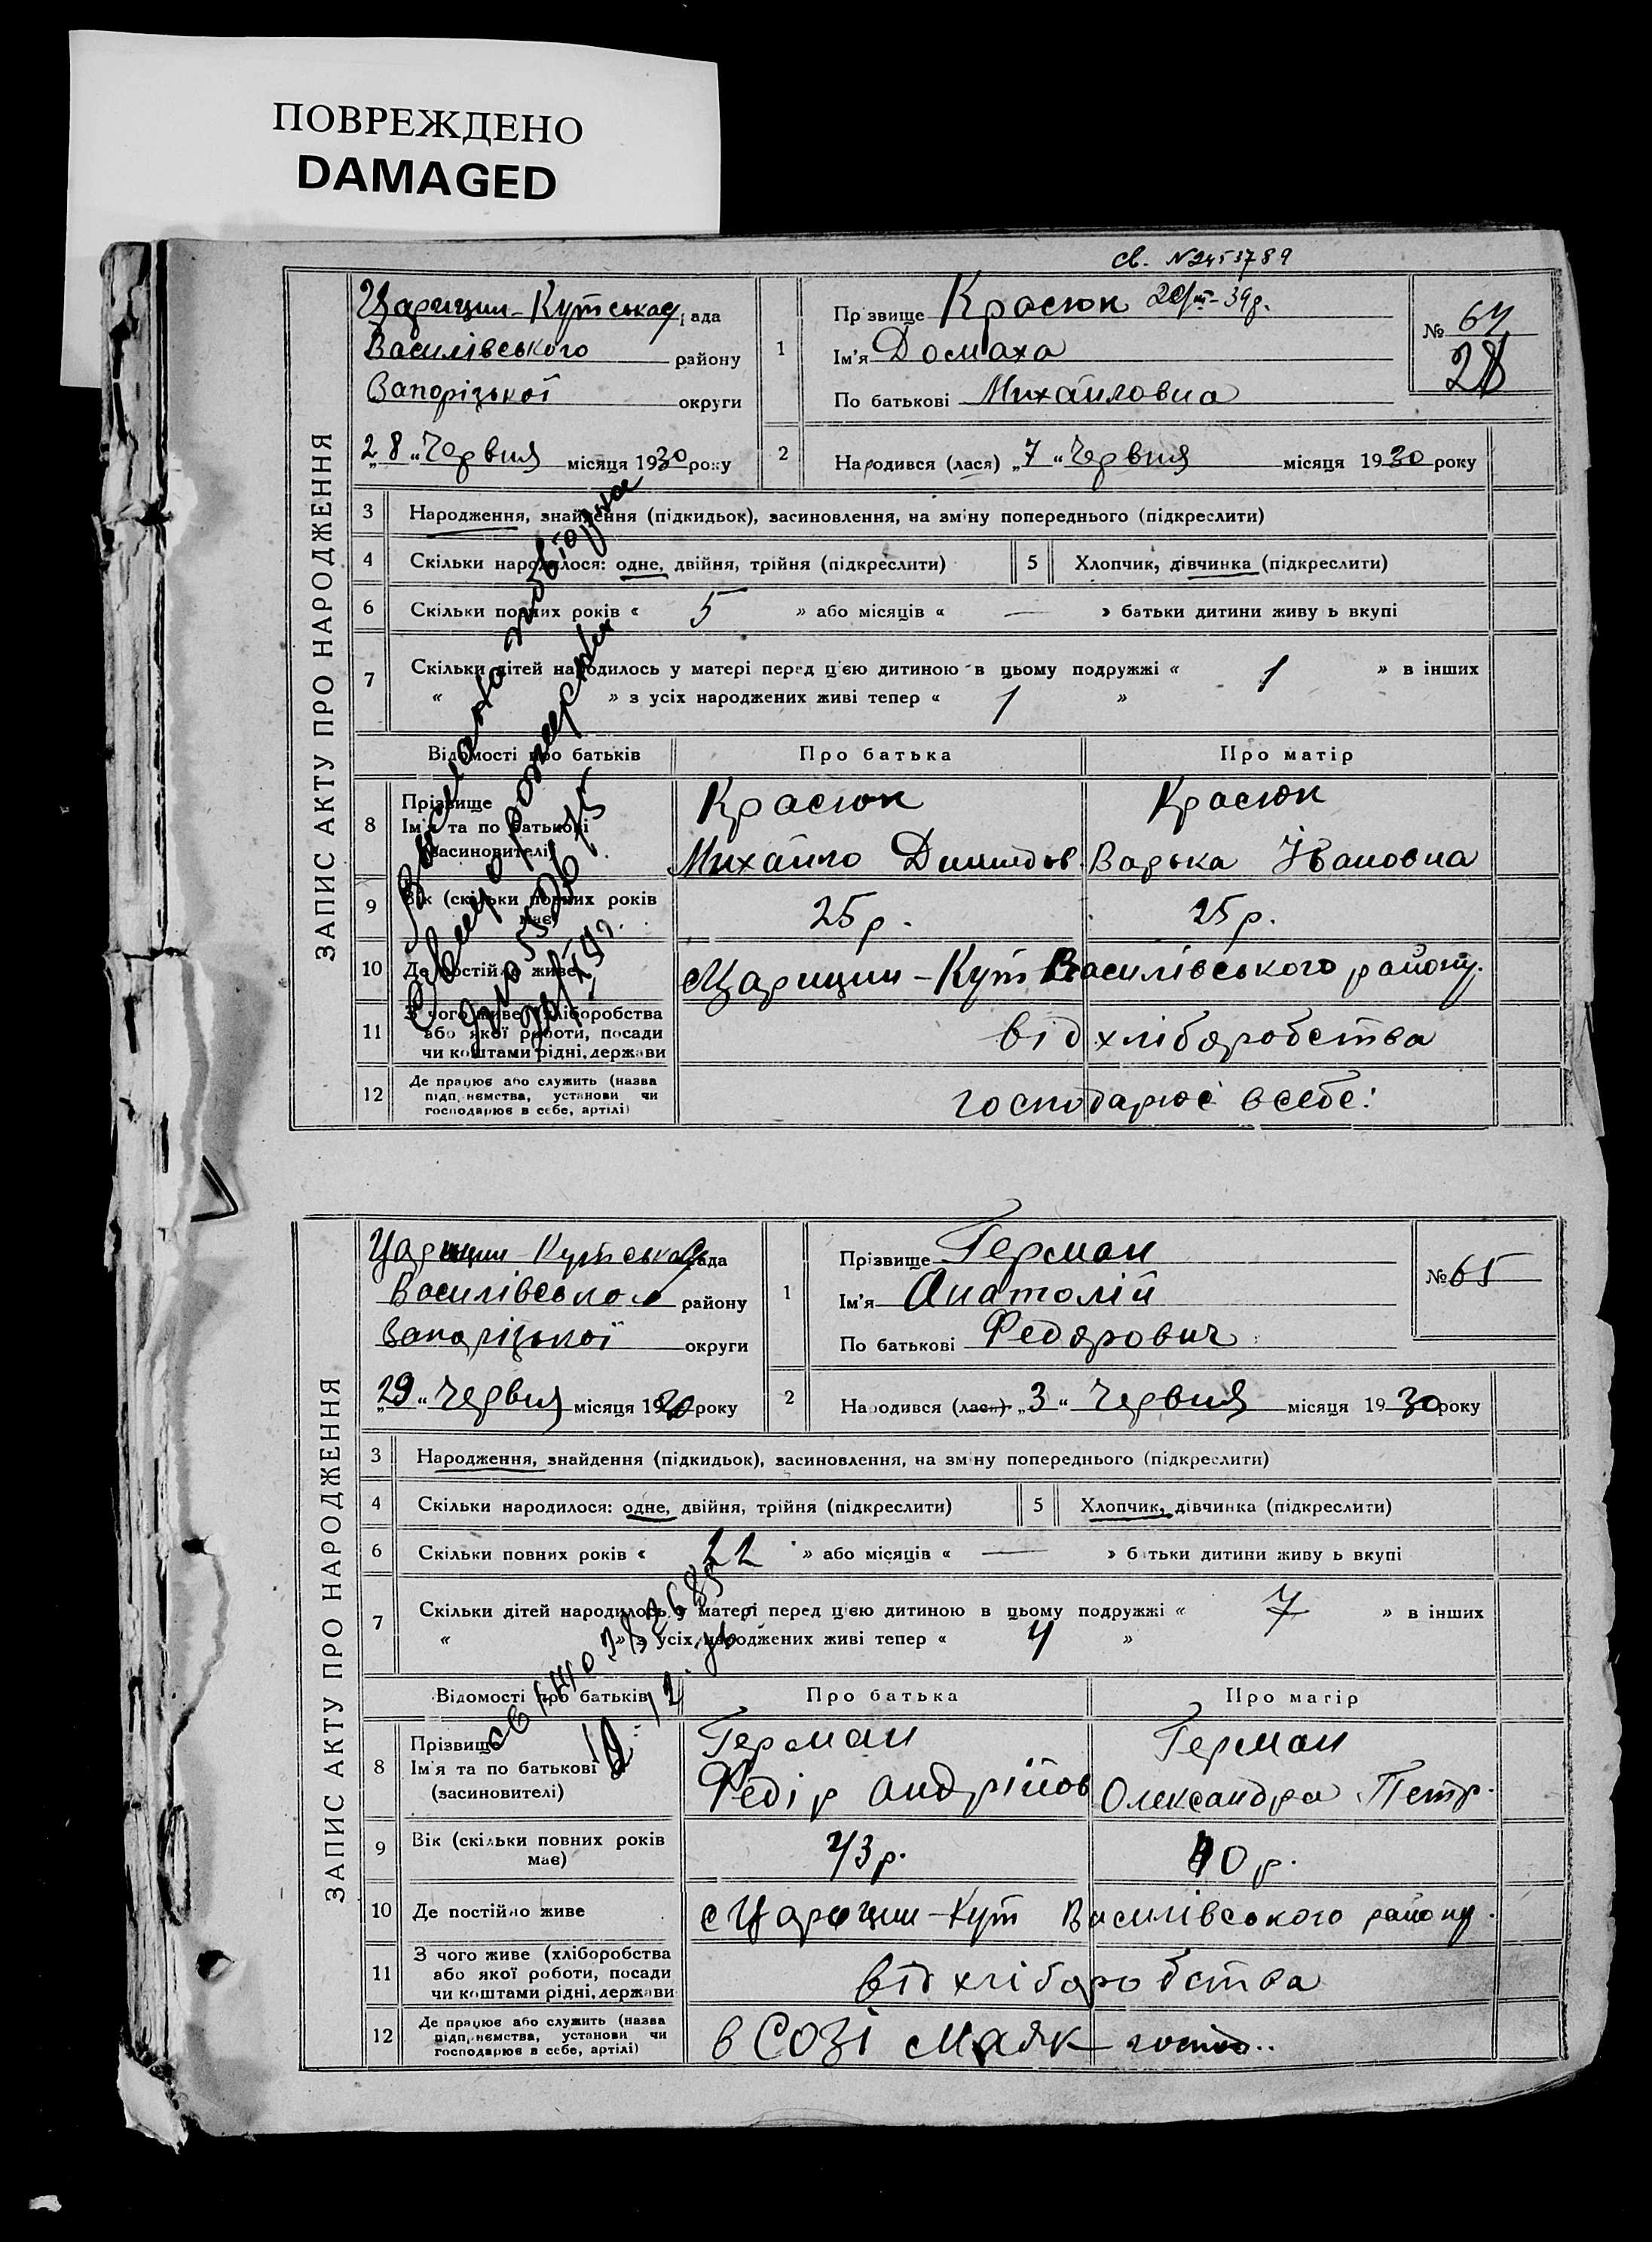 ПОВРЕЖДЕНО
DAMAGED
св. N2453789
ЗАПИС АКТУ ПРО НАРОДЖЕННЯ
Царицин-Кутська рада
Василівського району
Запорізької округи
„28“ Червня місяця 1930 року
1
Прізвище Красюк 20/III-39р.
Ім'я Домаха
По батькові Михайловна
№ 64
28
2
Народився (лася) „7“ Червня місяця 1930 року
3 Народження, знайдення (підкидьок), засиновлення, на зміну попереднього (підкреслити)
4 Скільки народилося: одне, двійня, трійня (підкреслити)
5 Хлопчик, дівчинка (підкреслити)
6 Скільки повних років « 5 » або місяців « — » батьки дитини живуть вкупі
7 Скільки дітей народилось у матері перед цією дитиною в цьому подружжі « 1 » в інших
« » з усіх народжених живі тепер « 1 »
Відомості про батьків Про батька Про матір
8 Прізвище
Ім'я та по батькові
(засиновителі)
Красюк
Михайло
Красюк
Варька Івановна
9 Вік (скільки повних років
має)
25 р. 25 р.
10 Де постійно живе
с Царицин-Кут Василівського району.
11 З чого живе (хліборобства
або якої роботи, посади
чи коштами рідні, держави
від хліборобства
12 Де працює або служить (назва
підприємства, установи чи
господарює в себе, артілі)
господарює в себе:
ЗАПИС АКТУ ПРО НАРОДЖЕННЯ
Царицин-Кутська рада
Василівського району
Запорізької округи
„29“ Червня місяця 1930 року
1
Прізвище Герман
Ім'я Анатолій
По батькові Федорович
№ 65
2
Народився (лася) „3“ Червня місяця 1930 року
3 Народження, знайдення (підкидьок), засиновлення, на зміну попереднього (підкреслити)
4 Скільки народилося: одне, двійня, трійня (підкреслити)
5 Хлопчик, дівчинка (підкреслити)
6 Скільки повних років « 22 » або місяців « — » батьки дитини живуть вкупі
7 Скільки дітей народилось у матері перед цією дитиною в цьому подружжі « 7 » в інших
« » з усіх народжених живі тепер « 4 »
Відомості про батьків Про батька Про матір
8 Прізвище
Ім'я та по батькові
(засиновителі)
Герман
Федір Андрійов
Герман
Олександра Петр.
9 Вік (скільки повних років
має)
43 р. 40 р.
10 Де постійно живе
с Царицин-Кут Василівського району.
11 З чого живе (хліборобства
або якої роботи, посади
чи коштами рідні, держави
від хліборобства
12 Де працює або служить (назва
підприємства, установи чи
господарює в себе, артілі)
в СОЗі Маяк